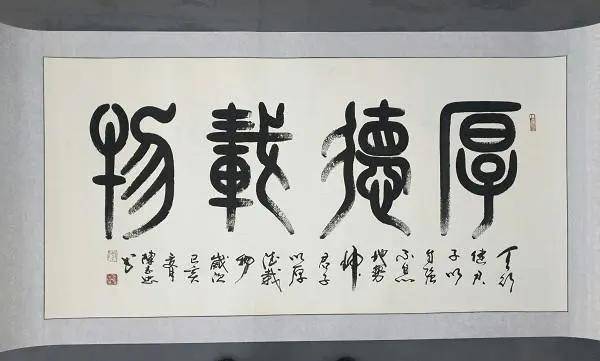 厚德載物
天行
健君
子以
自强
不息
地势
坤
君子
以厚
德载
物
歲次
己亥
月
陳
书